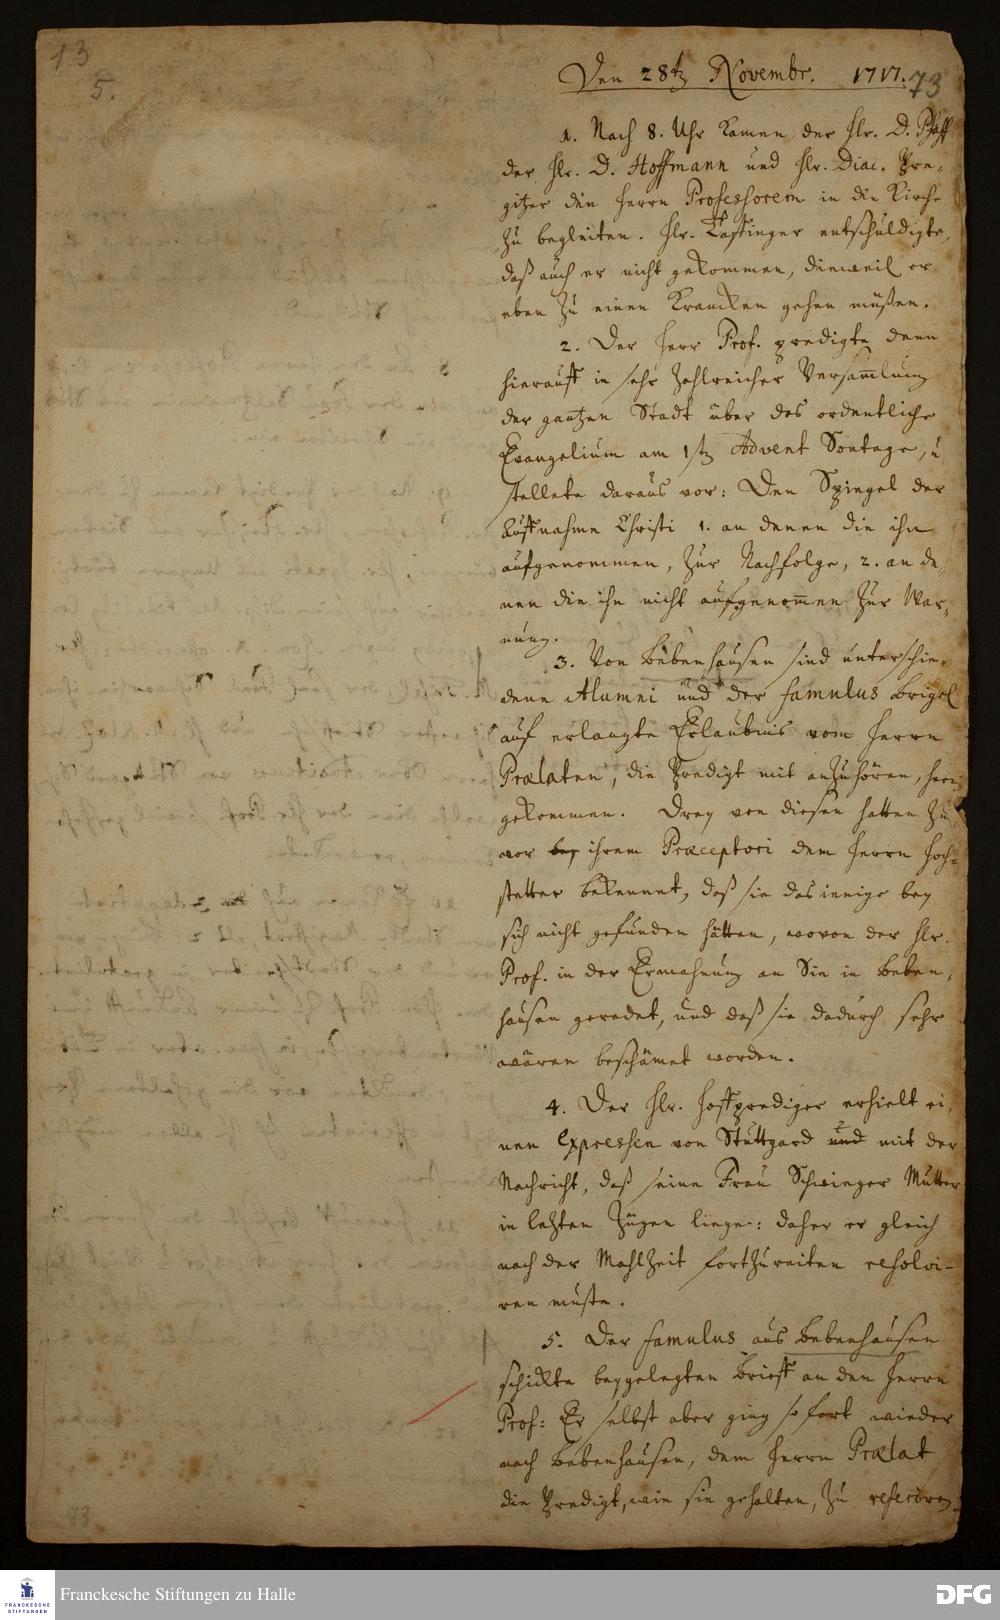 13
5.
Den 28t Novembr. 1717.
73
1. Nach 8. Uhr kamen der Hr. D. Pfaff
der Hr. D. Hoffmann und Hr. Diac. Pre-
gitzer den Herrn Professorem in die Kirche
zu begleiten. Hr. entschuldigte,
daß auch er nicht gekommen, dieweil er
eben zu einen Krancken gehen müßen.
2. Der Herr Prof. predigte denn
hierauff in sehr zahlreicher Versam̅lung
der gantzen Stadt über das ordentliche
Evangelium am 1st Advent Sontage, u
stellete daraus vor: Den Spiegel der
Auffnahme Christi 1. an denen die ihn
aufgenommen, zur Nachfolge, 2. an de-
nen die ihn nicht aufgenom̅en zur War-
nung.
3. Von Bebenhausen sind unterschie-
dene Alumni und der famulus Brigel
auf erlangte Erlaubnis vom Herrn
Prælaten, die Predigt mit anzuhören, herein
gekommen. Drey von diesen hatten zu
vor bey ihrem Præceptori dem Herrn Hoch-
stetter bekennet, daß sie dasienige bey
sich nicht gefunden hätten, wovon der Hr.
Prof. in der Ermahnung an Sie in Beben-
hausen geredet, und daß sie dadurch sehr
wären beschämet worden.
4. Der Hr. Hoffprediger erhielt ei-
nen Expressen von Stuttgard und mit der
Nachricht, daß seine Frau Schwieger Mutter
in letzten Zügen liege: daher er gleich
nach der Mahlzeit fortzureiten resolvi-
ren muste.
5. Der famulus aus Bebenhausen
schickte beygelegten Brieff an den Herrn
Prof: Er selbst aber ging so fort wieder
nach Bebenhausen, dem Herrn Prælat
die Predigt, wie sie gehalten, zu referiren.
73
FRANCKESCHE
STIFTUNGEN
Franckesche Stiftungen zu Halle
DFG